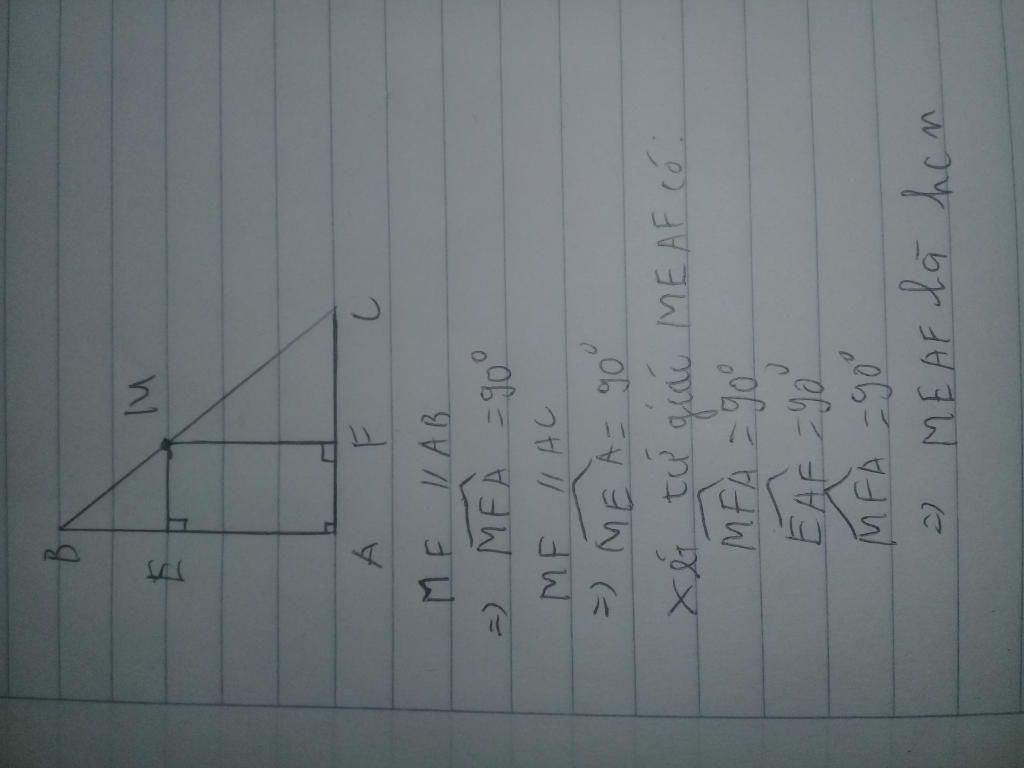 B
M
E
A
F
C
MF // AB
=> MFA = 90°
MF // AC
=> MEA = 90°
Xét tứ giác MEAF có:
MFA = 90°
EAF = 90°
MFA = 90°
=> MEAF là hcn